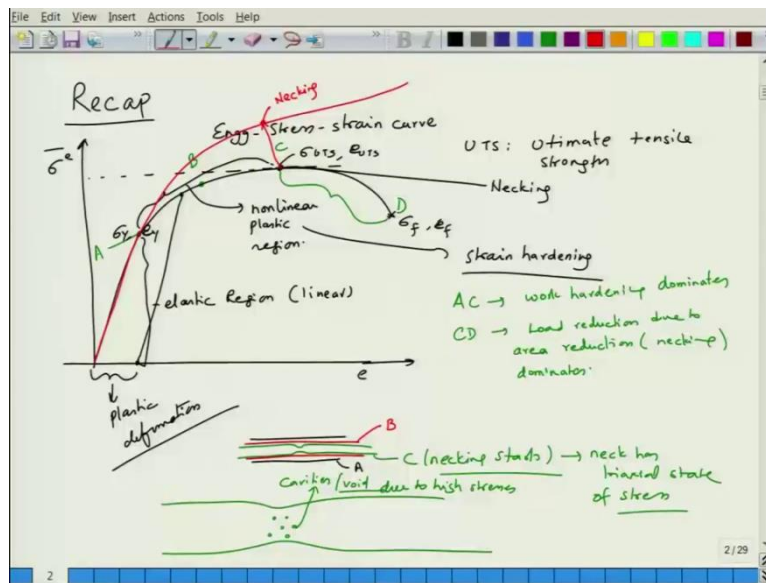 File Edit View Insert Actions Tools Help
Recap
Necking
Engg-Stress-strain curve
σᵉ
B
C
σ_UTS, e_UTS
UTS: Utimate tensile
strength
Necking
A
σy, ey
nonlinear
plastic
region.
D
σf, ef
Strain hardening
elastic Region (linear)
AC → work hardening dominates
CD → Load reduction due to
area reduction (necking)
dominates.
e
plastic
deformation
B
C (necking starts) → neck has
triaxial state
of stress
A
Cavities / void due to high stresses
2/29
2